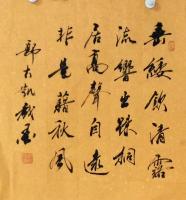 垂緌飲清露
流響出疎桐
居高聲自遠
非是藉秋風
郭大凱書